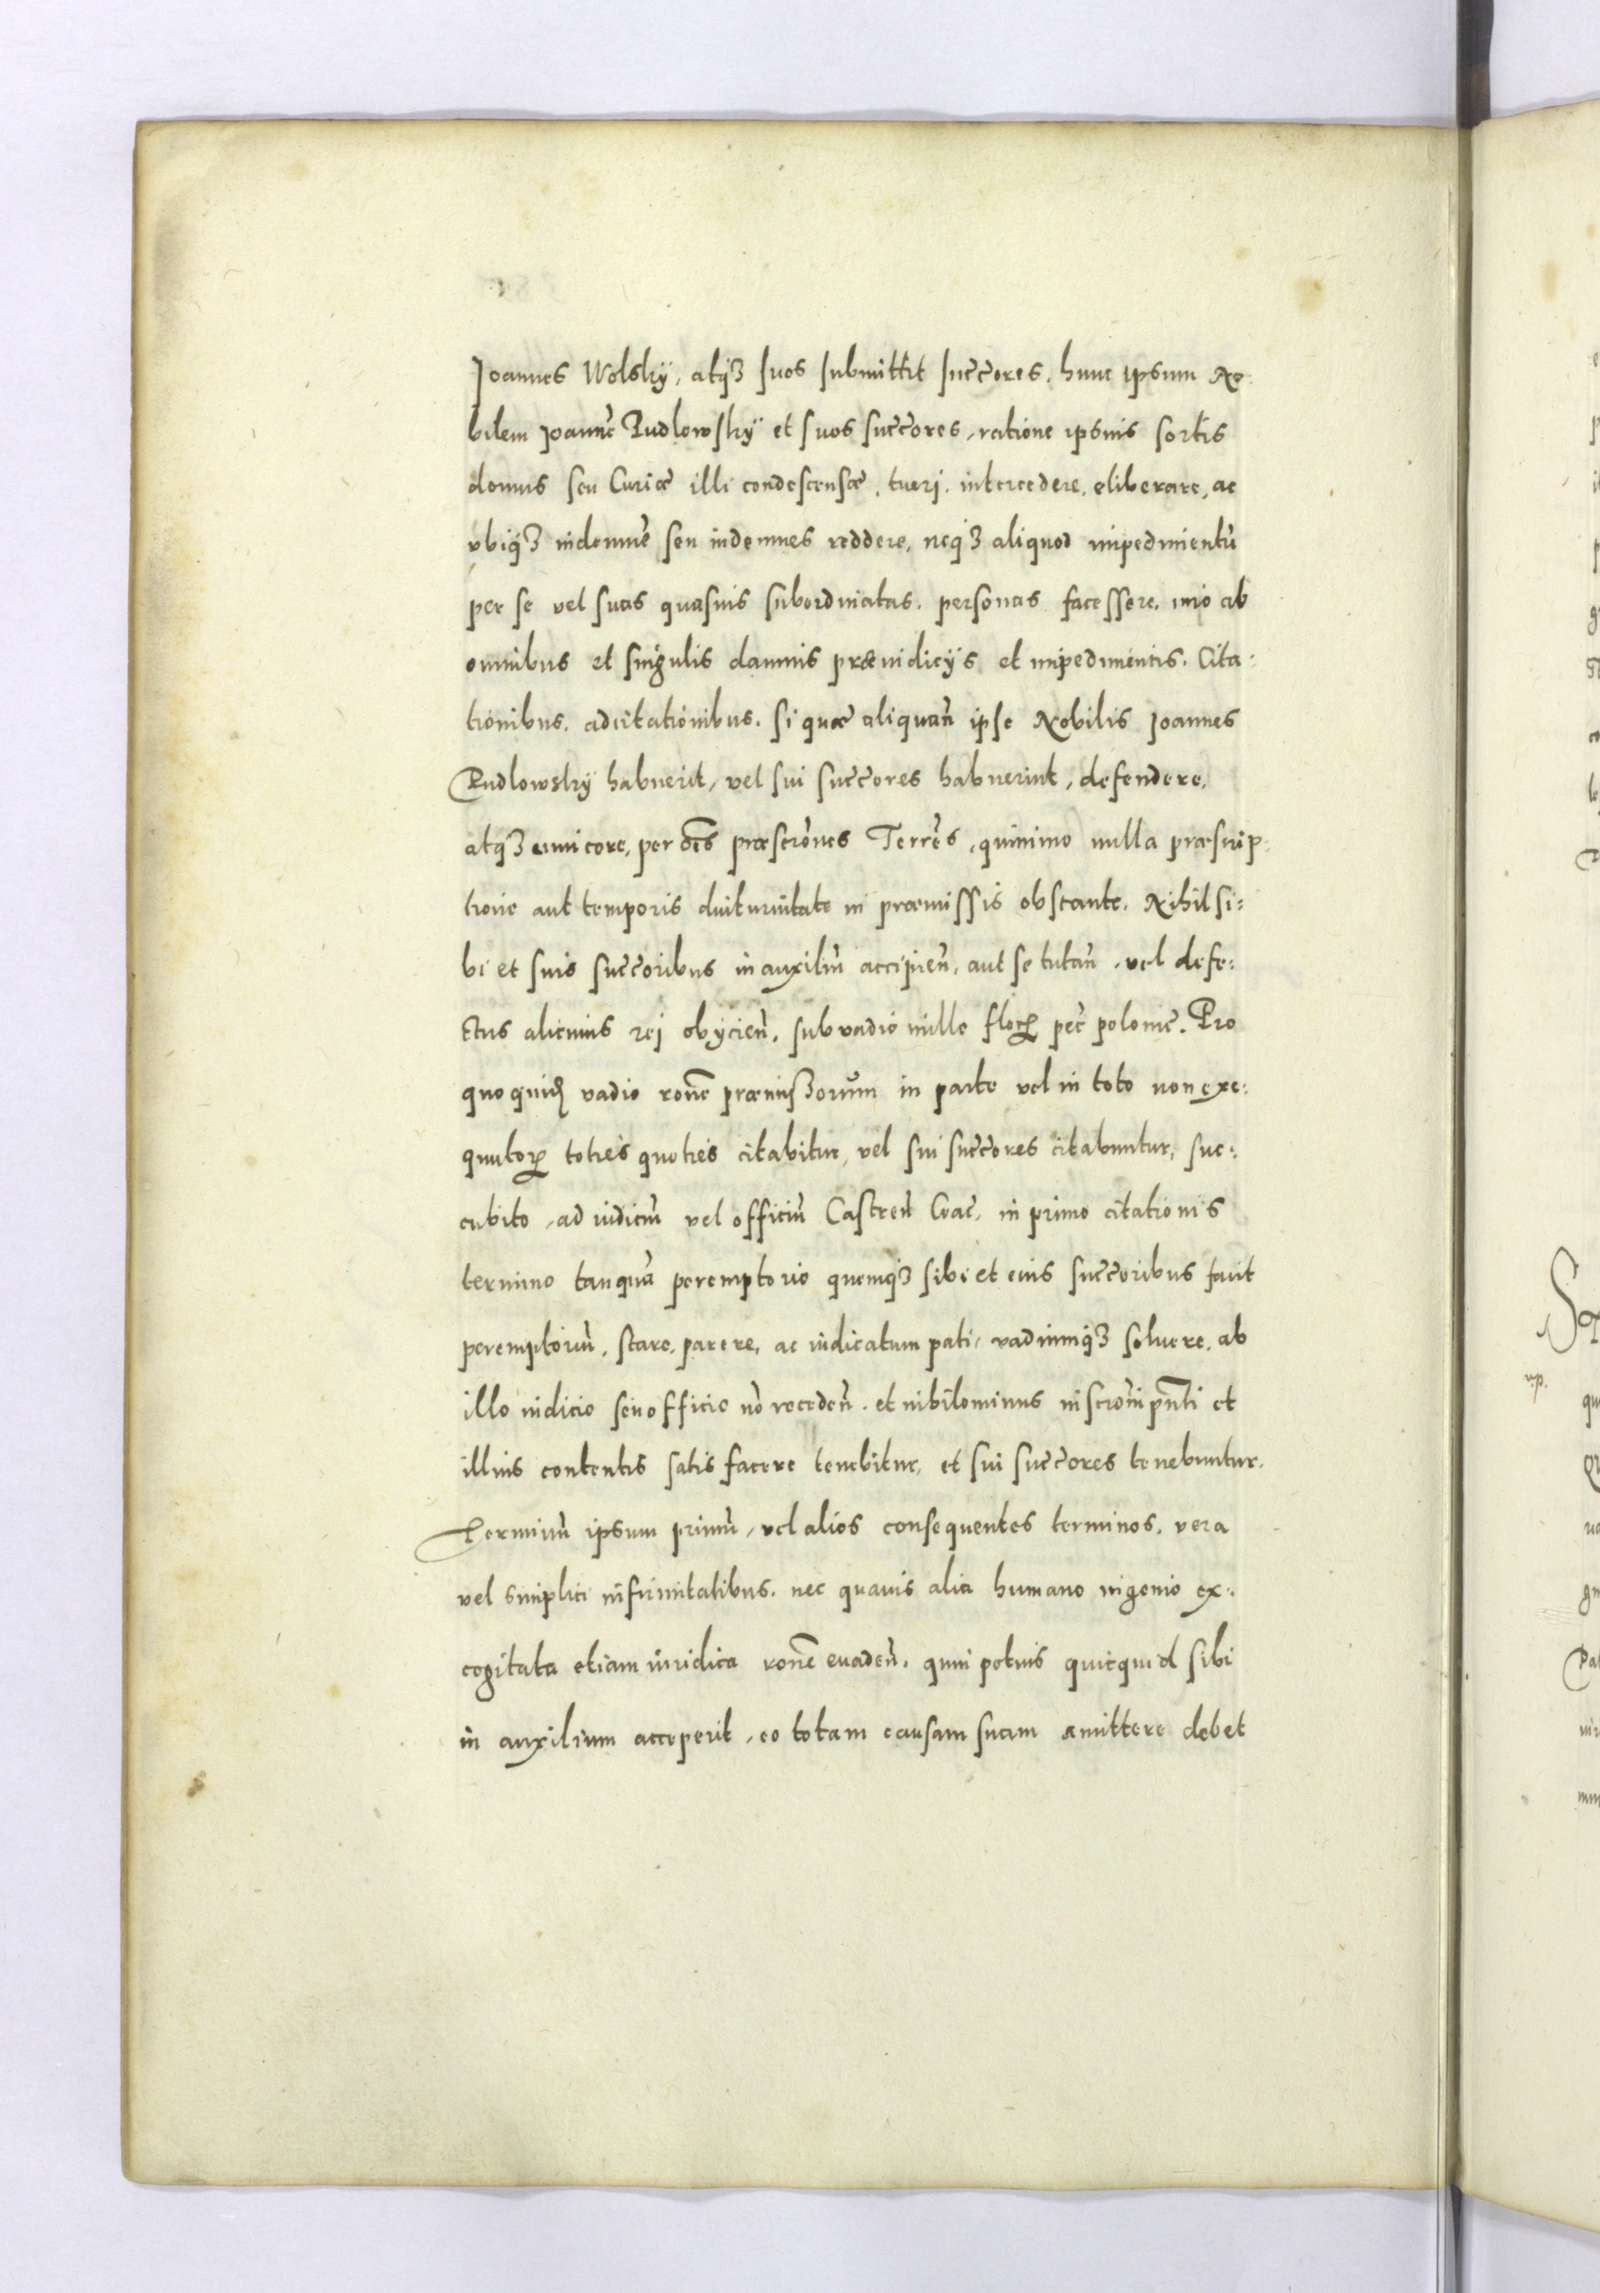 Joannes Wolsky, atq3 suos submittit succ̃ores, hunc ipsum No-
bilem Joannẽ Rudlowsky et suos succ̃ores, ratione ipsius sortis
domus seu Curiæ illi condescensæ, tueri, intercedere, eliberare, ac
vbiq3 indemnẽ seu indemnes reddere, neq3 aliquod impedimentũ
per se vel suas quasuis subordinatas personas facessere, imo ab
omnibus et singulis damnis præiudicÿs et impedimentis, Cita-
tionibus, adcitationibus, si quæ aliquañ ipse Nobilis Joannes
Rudlowsky habuerit, vel sui succ̃ores habuerint, defendere,
atq3 euincere, per oẽs præscriõnes Terrẽs, quinimo nulla præscrip-
tione aut temporis diuturnitate in præmissis obstante. Nihil si:
bi et suis succ̃oribus in auxiliũ accipieñ, aut se tutañ, vel defe:
ctus alicuius rei obÿcieñ, sub vadio mille floꝝ pẽc polonic̃. Pro
quo quid̃ vadio rõne præmissorum in parte vel in toto non exe:
quutoꝝ toties quoties citabitur, vel sui succ̃ores citabuntur, suc:
cubito, ad iudiciũ vel officiũ Castreñ Crac̃, in primo citationis
termino tanquã peremptorio quemq3 sibi et eius succ̃oribus facit
peremptoriũ, stare, parere, ac iudicatum pati, vadiumq3 soluere, ab
illo iudicio seu officio nõ recedeñ, et nihilominus inscriõni pñti et
illius contentis satisfacere tenebitur, et sui succ̃ores tenebuntur.
Terminũ ipsum primũ, vel alios consequentes terminos, vera
vel simplici infirmitatibus, nec quauis alia humano ingenio ex:
cogitata etiam iuridica rõne euadeñ, quin potius quicquid sibi
in auxilium acceperit, eo totam causam suam amittere debet